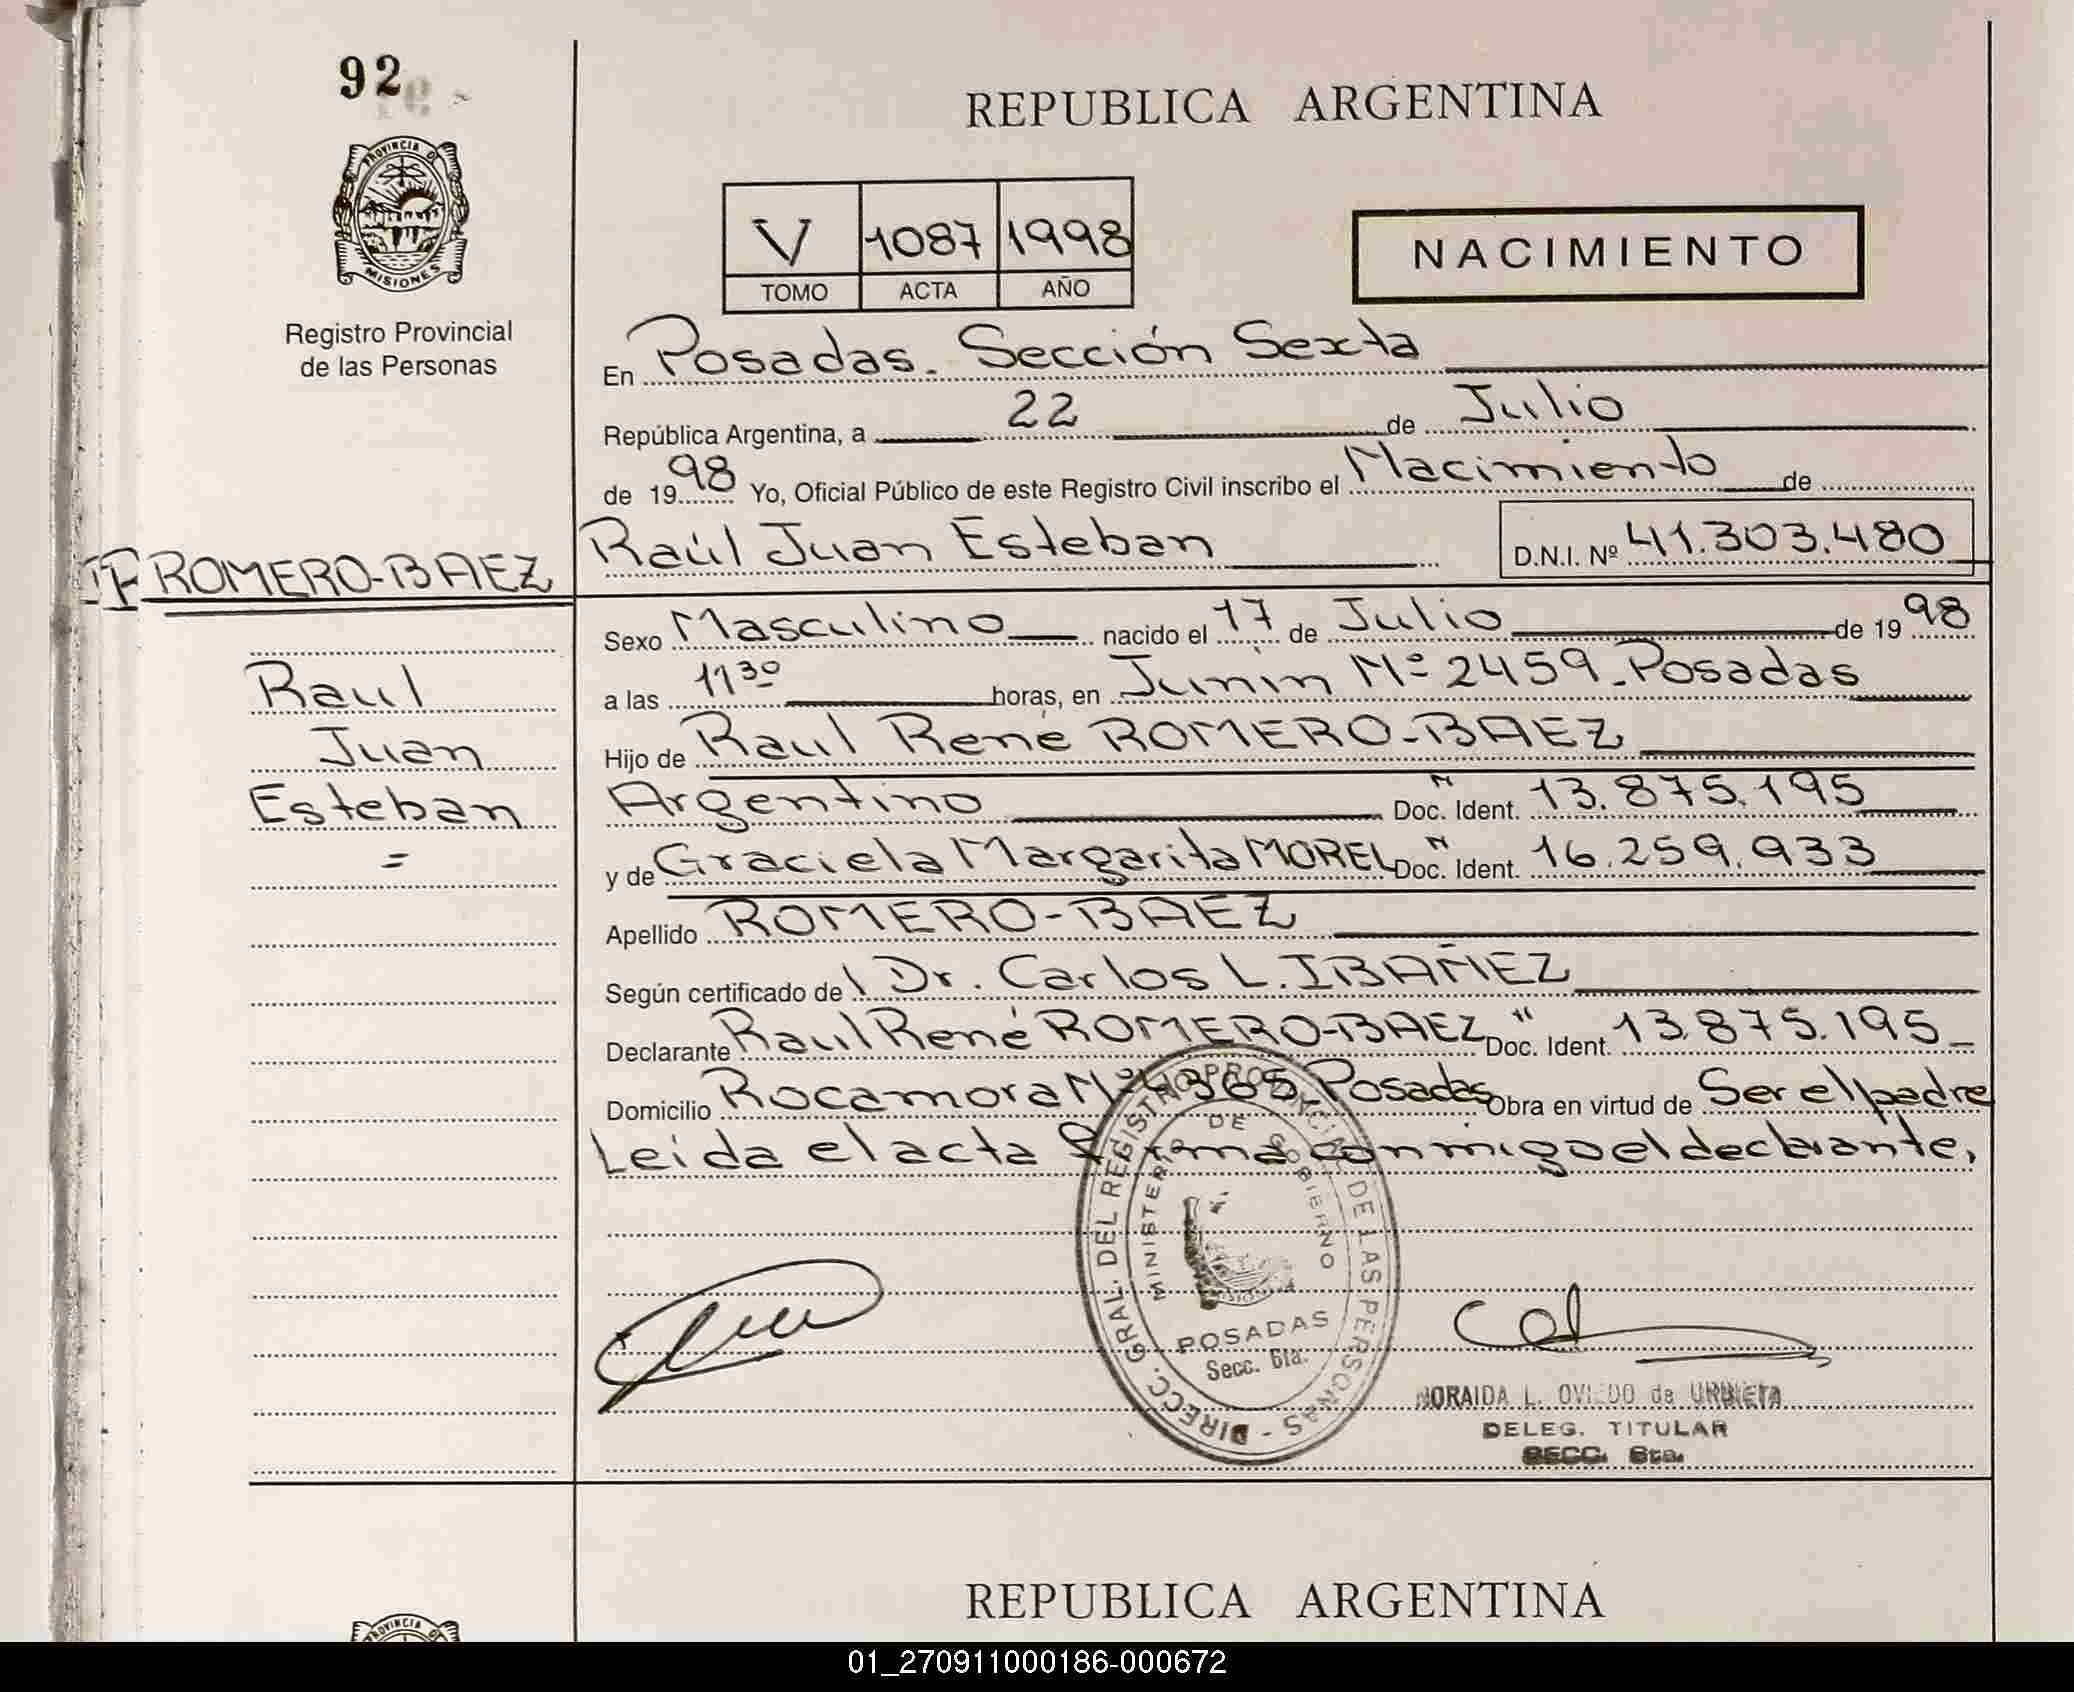 92
PROVINCIA D
MISIONES
Registro Provincial
de las Personas
REPUBLICA ARGENTINA
V 1087 1998
TOMO ACTA AÑO
NACIMIENTO
En Posadas. Sección Sexta
República Argentina, a 22 de Julio
de 1998 Yo, Oficial Público de este Registro Civil inscribo el Nacimiento de
Raúl Juan Esteban D.N.I. Nº 41.303.480
ROMERO-BAEZ
Raul
Juan
Esteban
=
Sexo Masculino nacido el 17 de Julio de 1998
a las 11 30 horas, en Junín Nº 2459_Posadas
Hijo de Raul René ROMERO-BAEZ
Argentino Doc. Ident. 13.875.195
y de Graciela Margarita MOREL Doc. Ident. 16.259.933
Apellido ROMERO-BAEZ
Según certificado de Dr. Carlos L. IBAÑEZ
Declarante Raul René ROMERO-BAEZ Doc. Ident. 13.875.195_
Domicilio Rocamora Nº 4365_Posadas Obra en virtud de Ser el padre
Leída el acta firma conmigo el declarante,
DIRECC. GRAL. DEL REGISTRO PROVINCIAL DE LAS PERSONAS -
MINISTERIO DE GOBIERNO
POSADAS
Secc. 6ta.
NORAIDA L. OVIEDO de URBIETA
DELEG. TITULAR
SECC. 6ta.
REPUBLICA ARGENTINA
PROVINCIA D
01_270911000186-000672